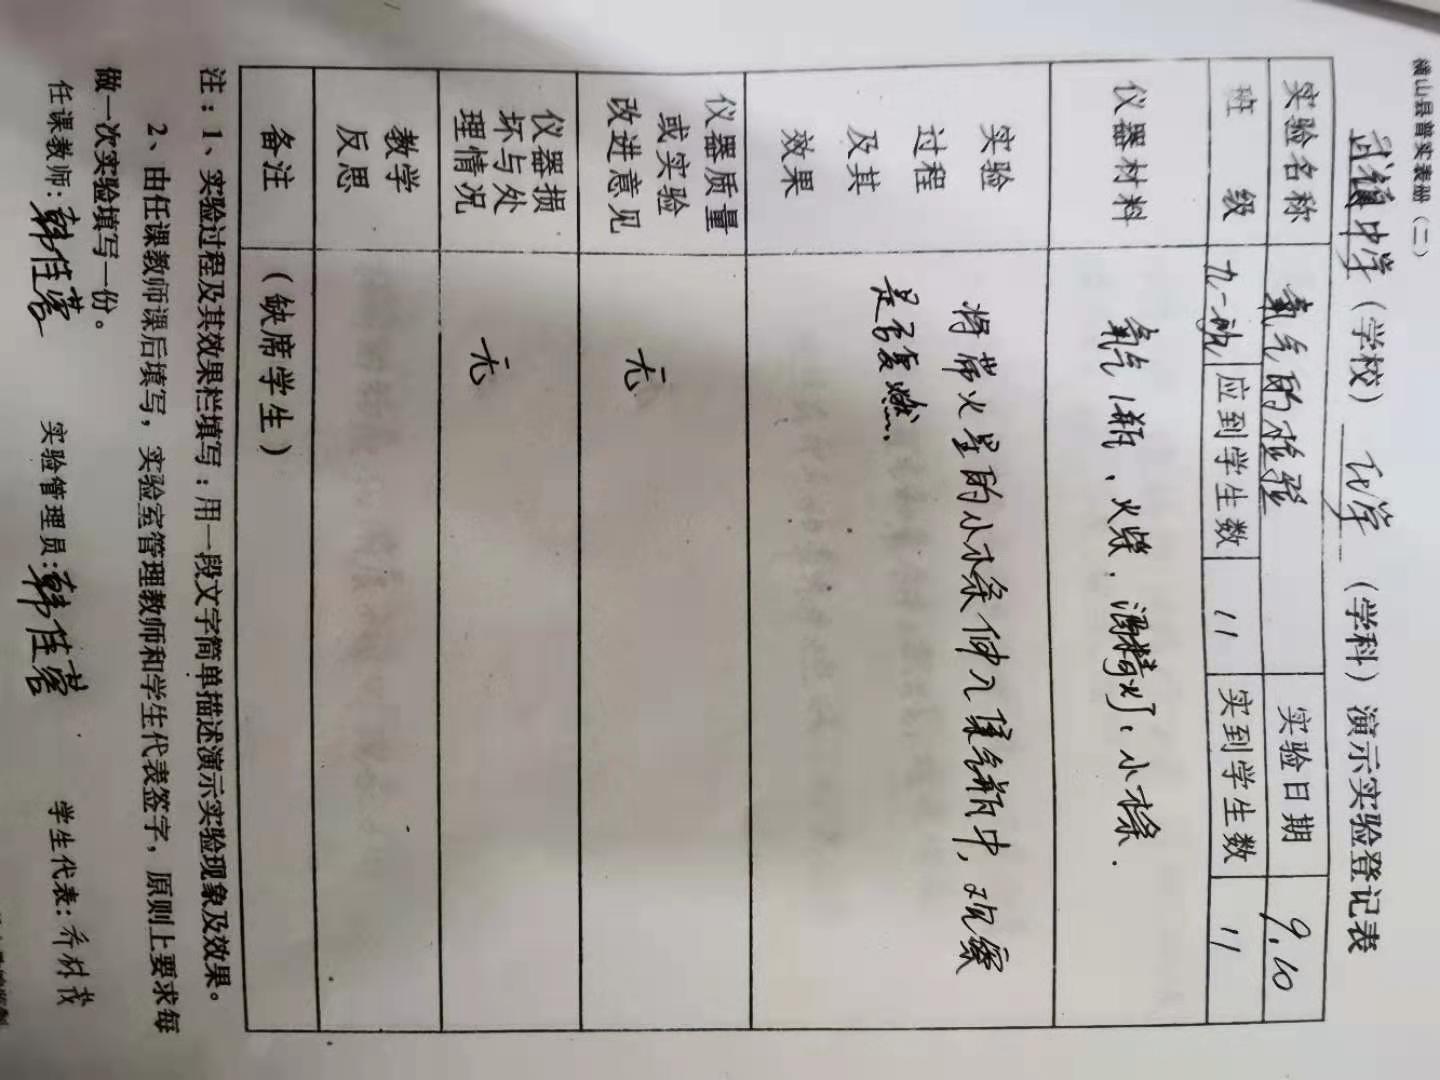 横山县普实表册（二）
武镇中学（学校） 化学 （学科）演示实验登记表
实验名称 氧气的检验 实验日期 9.10
班 级 九二班 应到学生数 11 实到学生数 11
仪器材料 氧气1瓶、火柴、酒精灯、小木条.
实验
过程
及其
效果
将带火星的小木条伸入集气瓶中，观察
是否复燃.
仪器质量
或实验
改进意见
无
仪器损
坏与处
理情况
无
教学
反思
备注 （缺席学生）
注：1、实验过程及其效果栏填写：用一段文字简单描述演示实验现象及效果。
2、由任课教师课后填写，实验室管理教师和学生代表签字，原则上要求每
做一次实验填写一份。
任课教师：韩佳蓉 实验管理员：韩佳蓉 学生代表：乔树茂